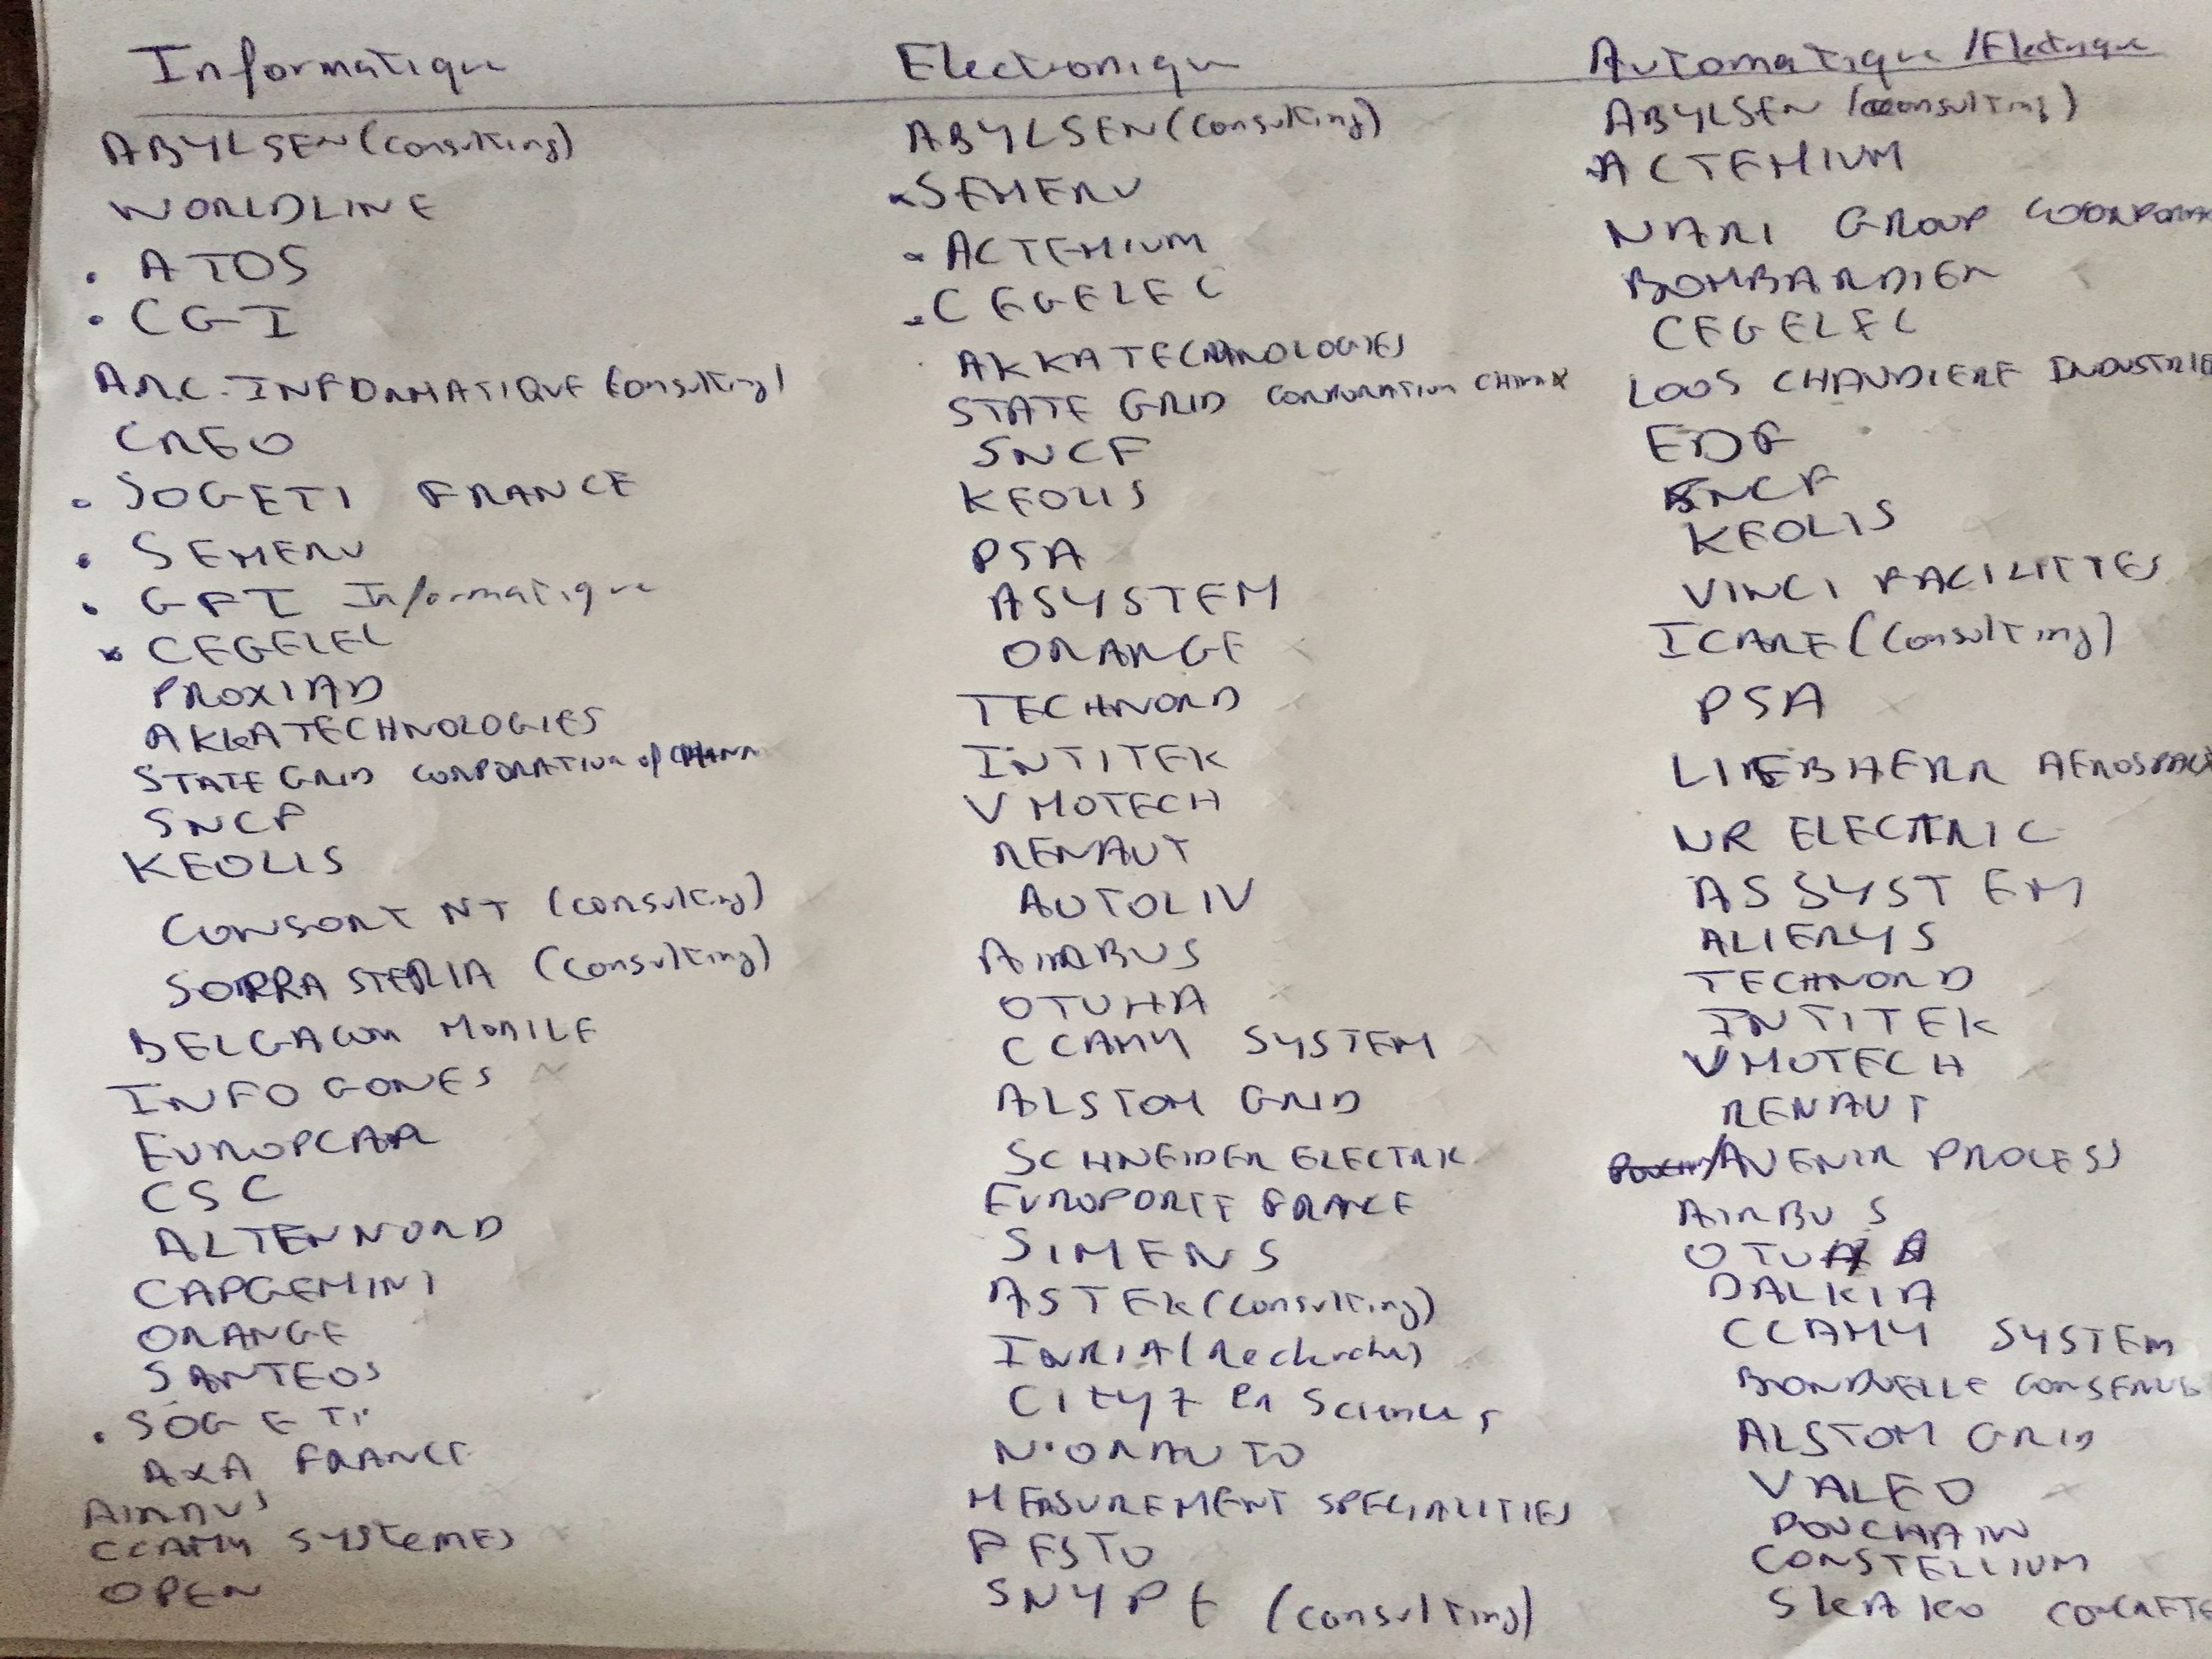 Informatique
ABYLSEN (consulting)
WORLDLINE
. ATOS
. CGI
A.R.C. INFORMATIQUE (consulting)
CREO
. SOGETI FRANCE
. SEMERU
. GFI Informatique
x CEGELEC
PROXIAD
AKKA TECHNOLOGIES
STATE GRID CORPORATION of
SNCF
KEOLIS
CONSORT NT (consulting)
SOPRA STERIA (consulting)
BELGACOM MOBILE
INFO GONES
EUROPCAR
CSC
ALTEN NORD
CAPGEMINI
ORANGE
SANTEOS
. SOGETI
AXA FRANCE
AIRBUS
CCAMY SYSTEMES
OPEN
Electronique
ABYLSEN (consulting)
SEMERU
ACTEMIUM
CEGELEC
AKKA TECHNOLOGIES
STATE GRID CORPORATION CHINA
SNCF
KEOLIS
PSA
ASYSTEM
ORANGE
TECHNORD
INTITEK
VMOTECH
RENAUT
AUTOLIV
AIRBUS
OTUHA
CCAMY SYSTEM
ALSTOM GRID
SCHNEIDER ELECTRIC
EUROPORTE FRANCE
SIMENS
ASTEK (consulting)
INRIA (Recherche)
City7 en Sciences
NORAUTO
MEASUREMENT SPECIALITIES
FESTO
SNYPE (consulting)
Automatique / Electrique
ABYLSEN (consulting)
ACTEMIUM
NARI GROUP
BOMBARDIER
CEGELEC
LOOS CHAUDIERE INDUSTRIE
EDF
SNCF
KEOLIS
VINCI FACILITIES
ICARE (consulting)
PSA
LIEBHERR AEROSPACE
NR ELECTRIC
ASSYSTEM
ALIERYS
TECHNORD
INTITEK
VMOTECH
RENAUT
AVENIR PROCESS
AIRBUS
DALKIA
CCAMY SYSTEM
BONDUELLE
ALSTOM GRID
VALEO
POUCHAIN
CONSTELLIUM